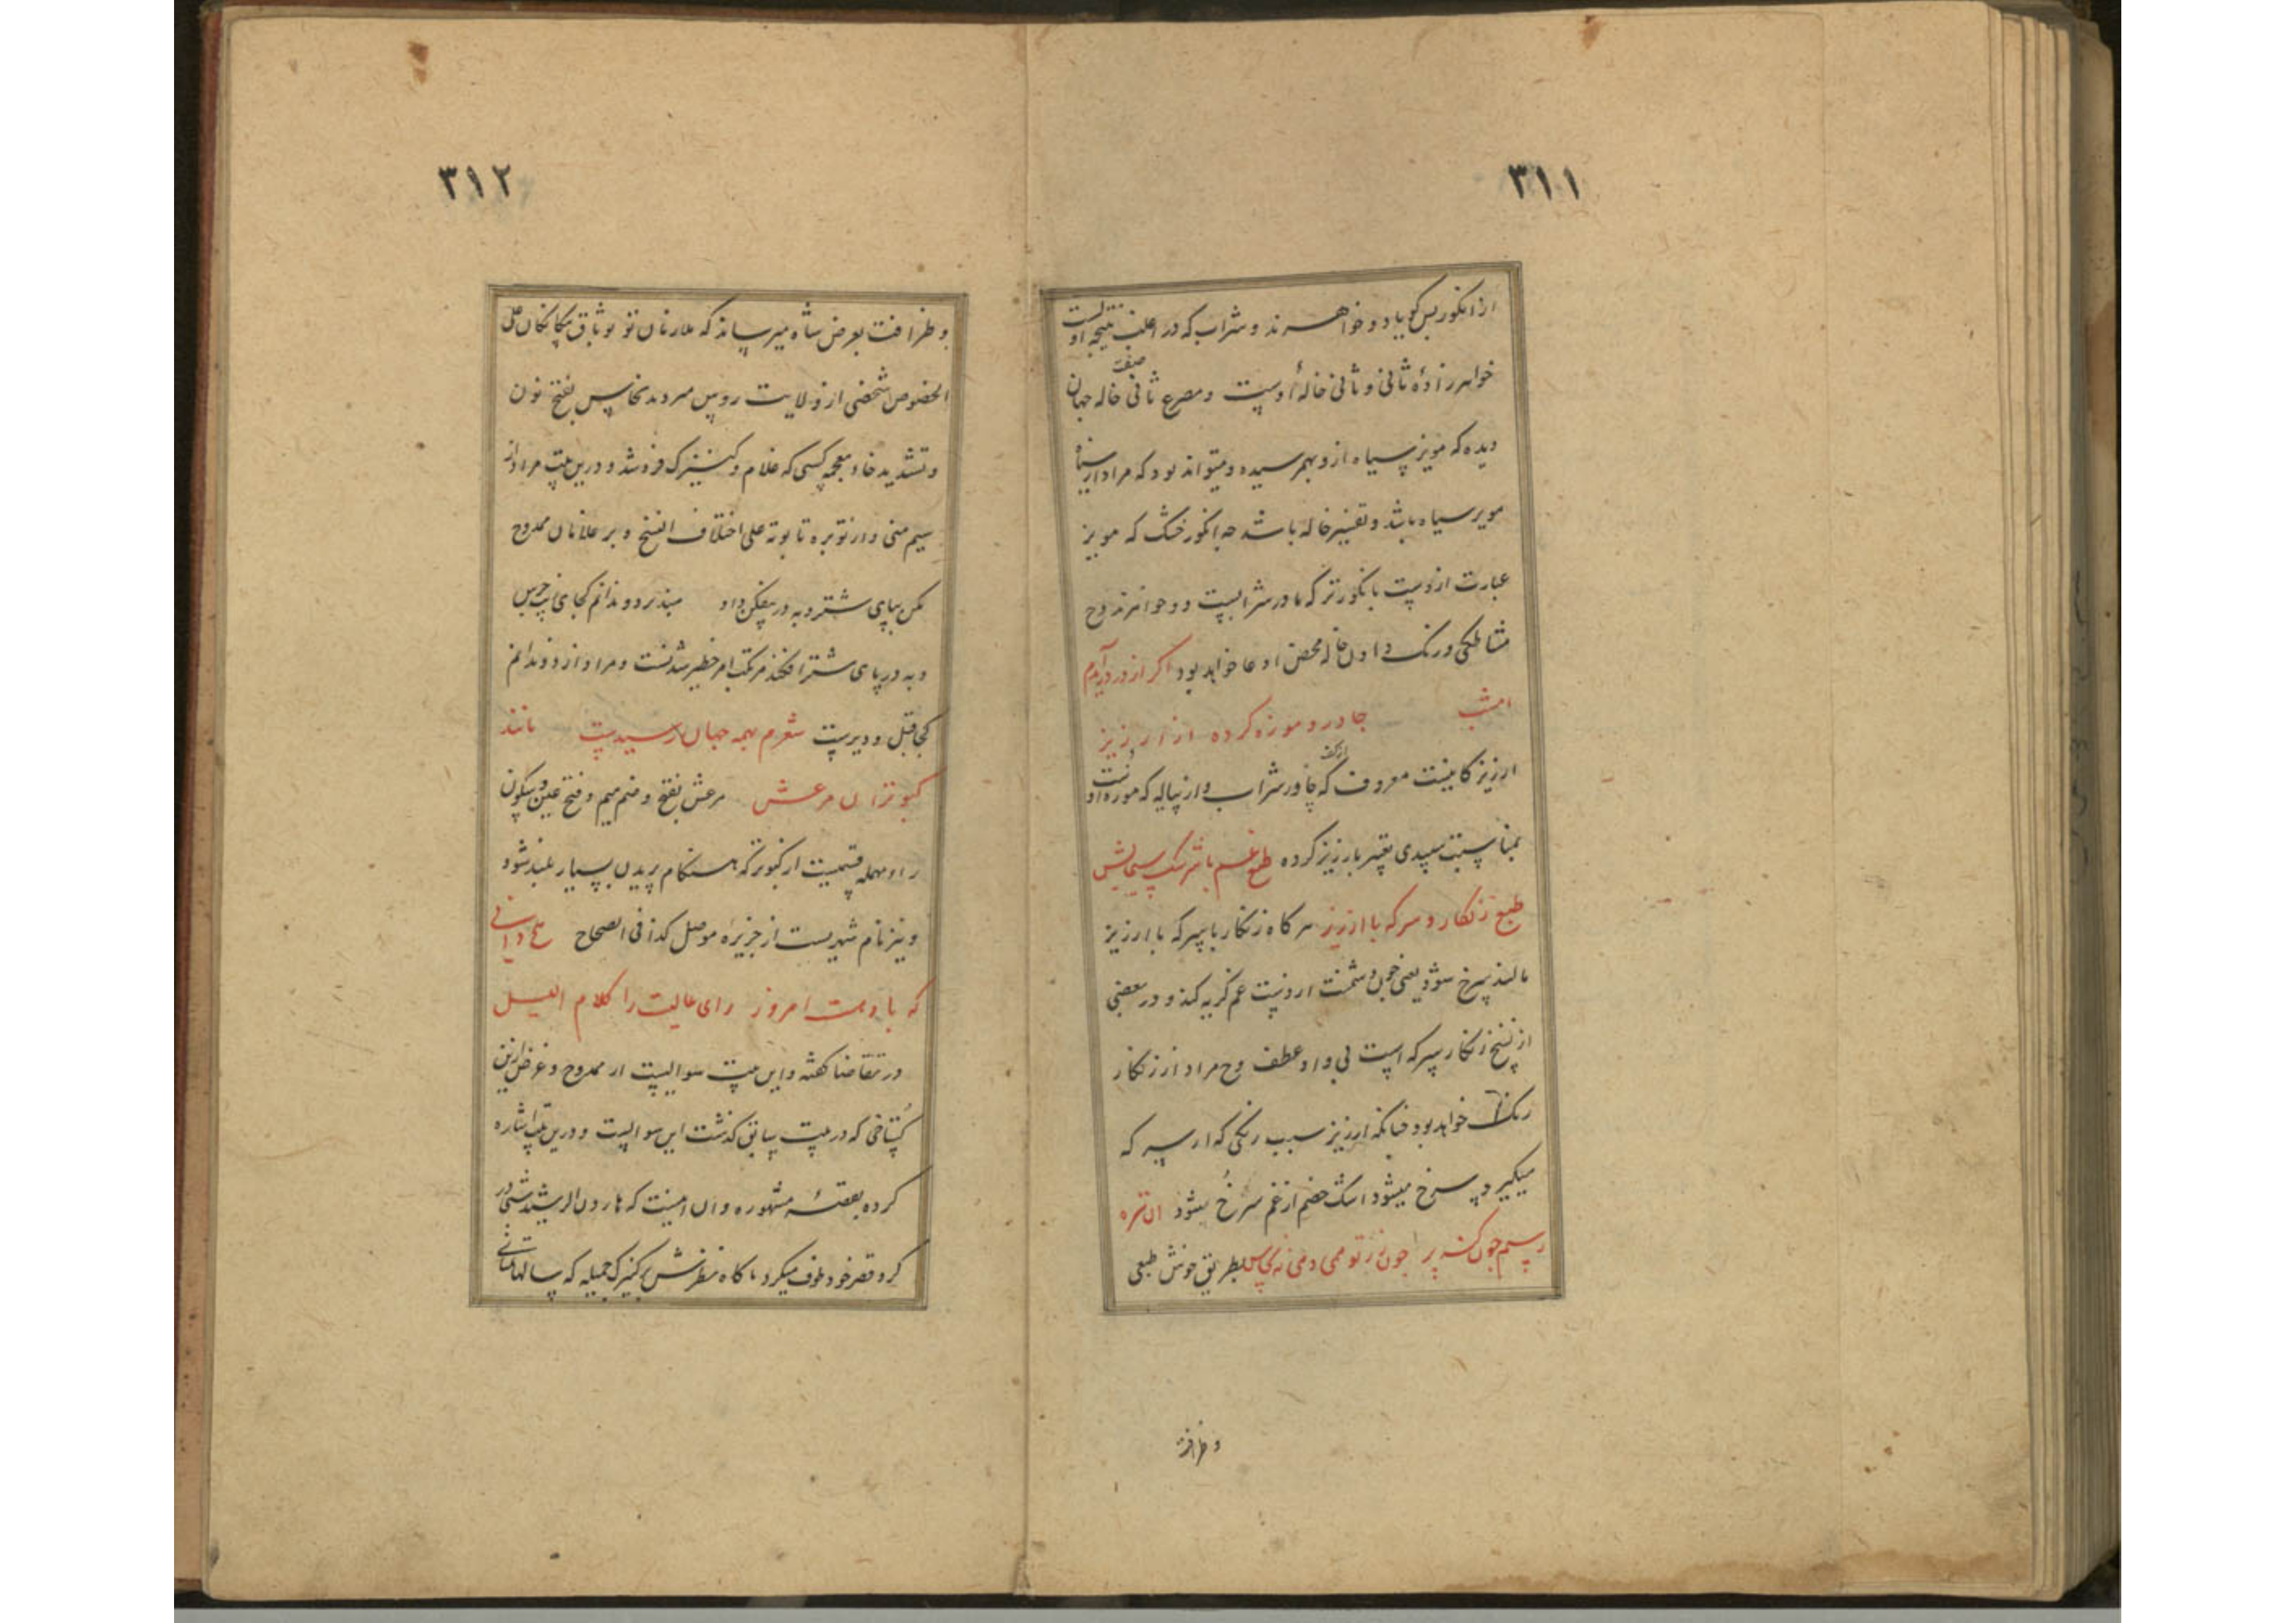 ٣١١
از انکور پس کویا دو خواهرند و شراب که در اغلب نتیجه اوست
خواهرزادهٔ ثانی و ثانی خالهٔ اوست و مصرع ثانی صفت خاله جهان
دیده که مویز سیاه ازو بهم رسیده و میتواند بود که مراد از سیاه
مویز سیاه باشد و تفسیر خاله باشد چه انکور خشک که مویز
عبارت ازوست با انکور تر که مادر شرابست دو خواهرند و ح
مشاطکی و رنک دادن خاله محض ادعا خواهد بود اکر از در درآیدم
امشب جادر و موزه کرده از ارزیز
ارزیز کانیست معروف که از کف چادر شراب و از پیاله که موزه اوست
بمناسبت سپیدی تعبیر بارزیز کرده طبع غم با سرشک سیمایش
طبع زنکار و سرکه با ارزیز هر کاه زنکار با سرکه با ارزیز
مالند سرخ شود یعنی چون دشمنت از دست غم کریه کند و در بعضی
از نسخ زنکار سرکه است بی واو عطف و ح مراد از زنکار
رنک آن خواهد بود چنانکه ارزیز سبب رنکی که از سرکه
میکیرد سرخ میشود اشک خصم از غم سرخ میشود ان نقره
بطریق خوش طبعی
و ظرافت
٣١٢
و ظرافت بعرض شاه میرساند که غلامان تو بوثاق یکانکان علی
الخصوص شخصی از ولایت روس میرود نخاس بفتح نون
و تشدید خاء معجمه کسی که غلام و کنیزک فروشد و درین بیت مراد از
سیم منی و از توبره تا بوته علی اختلاف النسخ و بر غلامان ممدوح
مکن بپای شتر دبه در بیفکن داد
دبه در پای شتر افکندن مرتکب امر خطیر شدنست و مراد از دو ندانم
کجا قبل و دبرست شعرم بهمه جهان رسیدست مانند
کبوتران مرعش مرعش بفتح و ضم میم و فتح عین و سکون
راء مهمله قسمیست از کبوتر که هنکام پریدن بسیار بلند شود
و نیز نام شهریست از جزیرهٔ موصل کذا فی الصحاح
که با وهت امروز رای عالیت را کلام اللیل
در تقاضا کفته و این بیت سوالیست از ممدوح و غرض ازین
کستاخی که در بیت سابق کذشت این سوالست و درین بیت اشاره
کرده بقصهٔ مشهوره و آن اینست که هارون الرشید شبی در
کرد قصر خود طوف میکرد ناکاه نظرش بر کنیزک جمیله که سالها